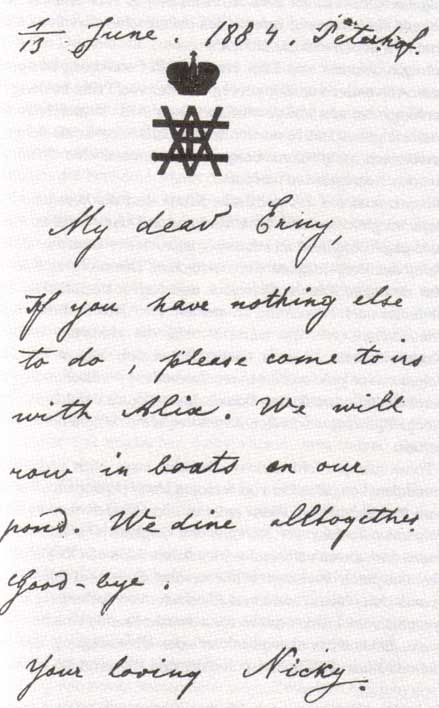 1/13 June. 1884. Peterhof.
My dear Erny
If you have nothing else
to do, please come to us
with Alix. We will
row in boats on our
pond. We dine alltogether.
Good-bye.
Your loving Nicky.